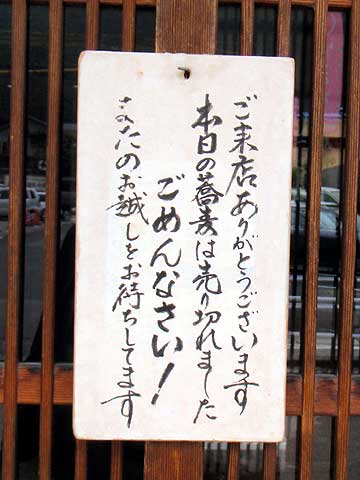 ご来店ありがとうございます
本日の蕎麦は売り切れました
ごめんなさい!
またのお越しをお待ちしてます